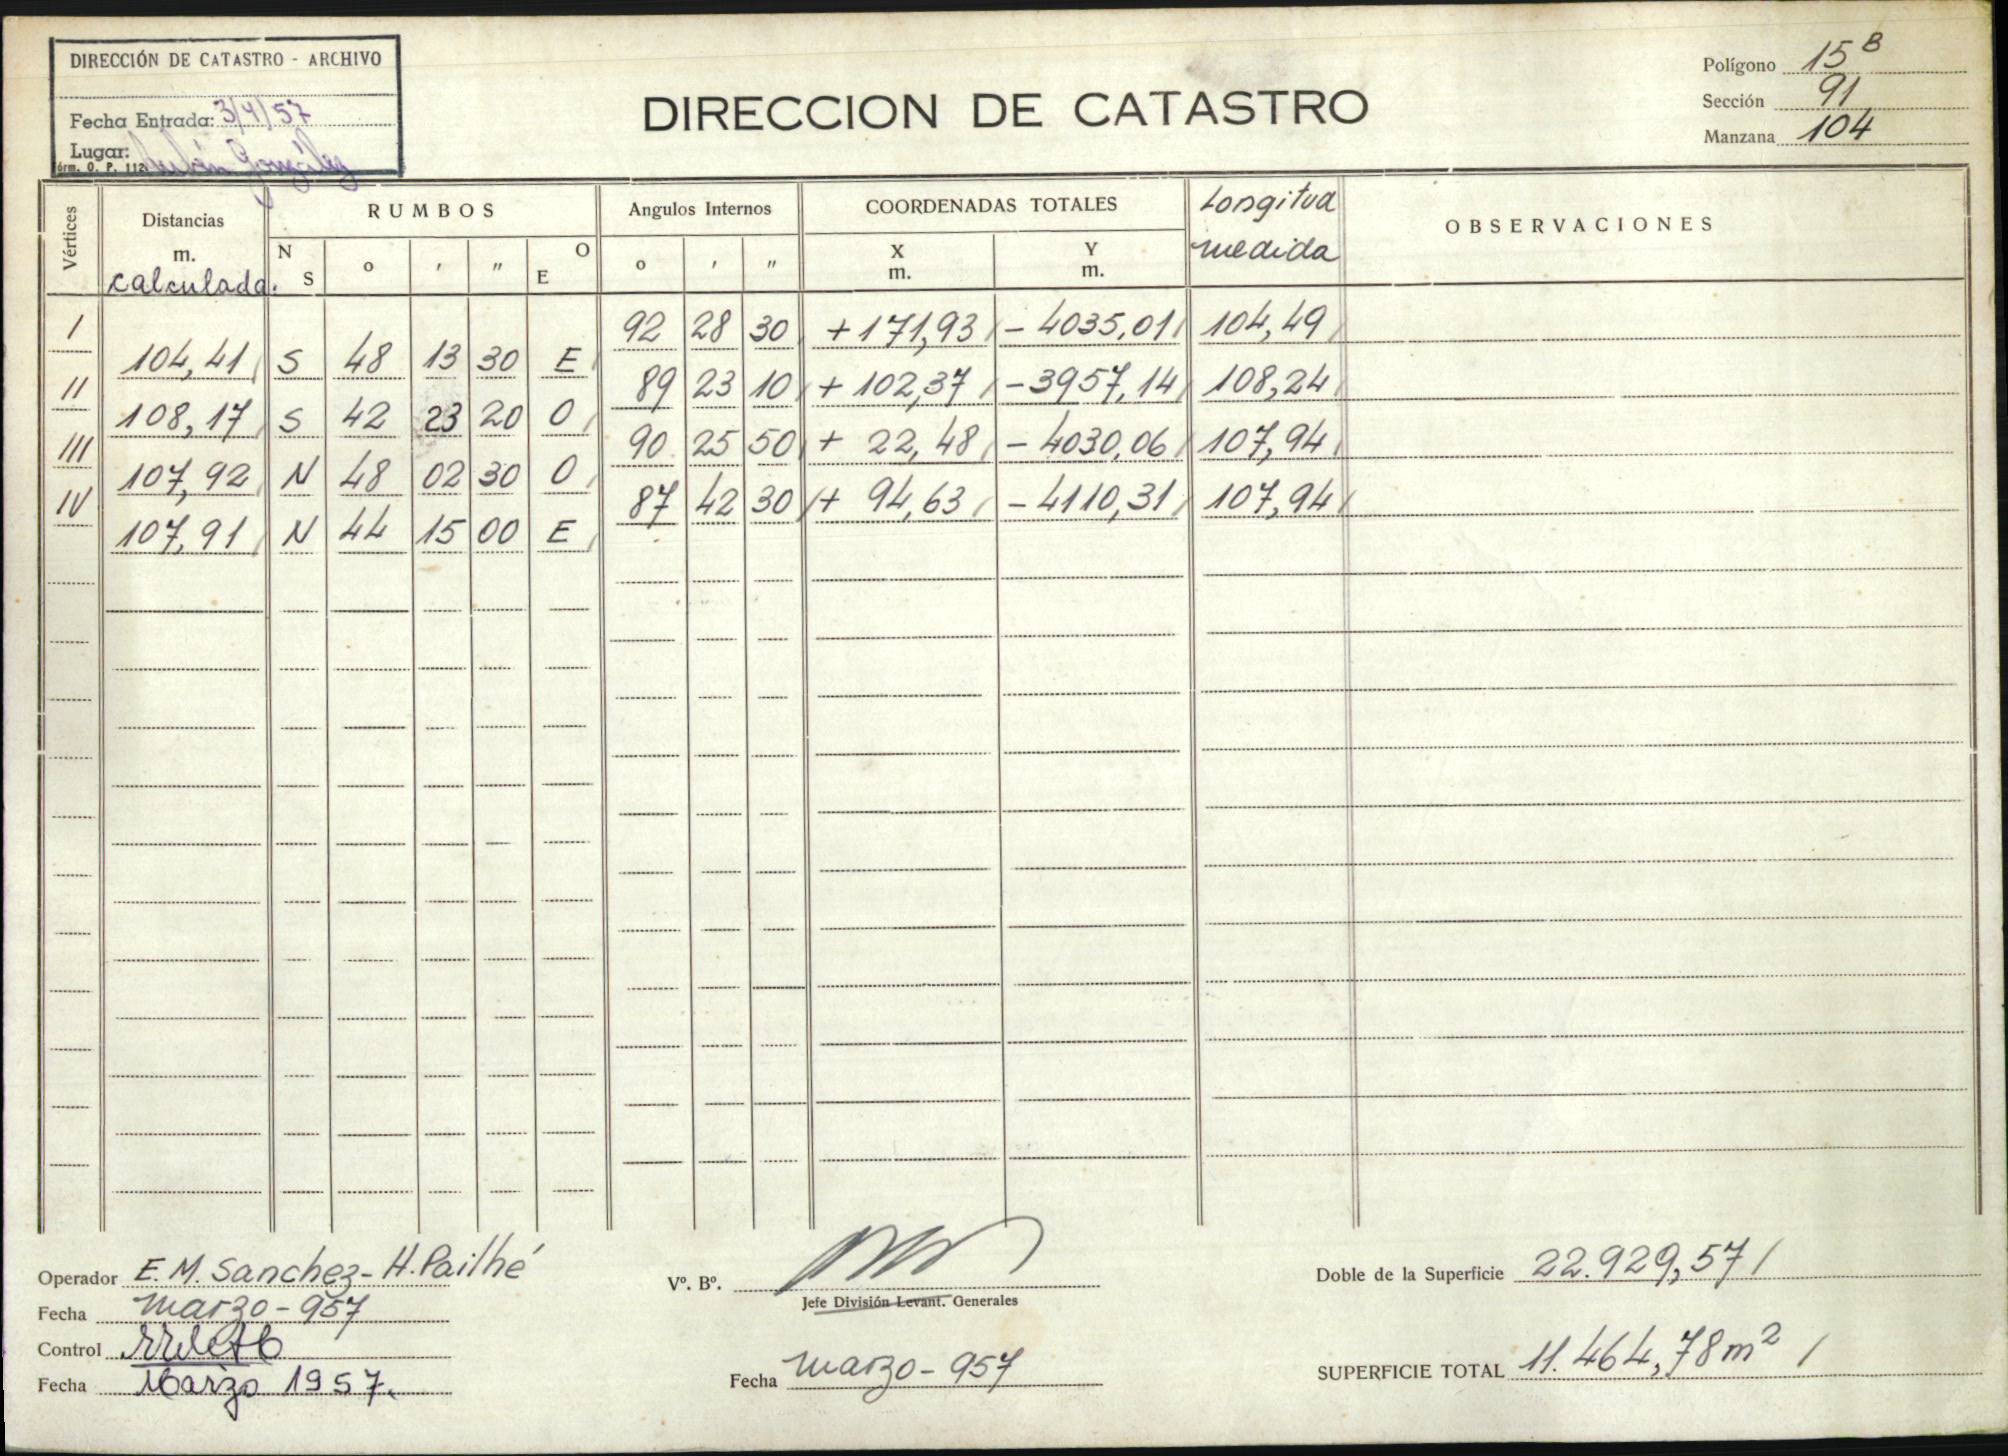 DIRECCIÓN DE CATASTRO - ARCHIVO
Fecha Entrada: 3/4/57
Lugar: Rubén González
órm. O. P. 112
DIRECCION DE CATASTRO
Polígono 15 B
Sección 91
Manzana 104
Vértices
Distancias
m.
calculada.
RUMBOS
N S ° ′ ″ O E
Angulos Internos
° ′ ″
COORDENADAS TOTALES
X
m.
Y
m.
Longitud
medida
OBSERVACIONES
I 92 28 30 +171,93 -4035,01 104,49
104,41 S 48 13 30 E
II 89 23 10 +102,37 -3957,14 108,24
108,17 S 42 23 20 O
III 90 25 50 + 22,48 -4030,06 107,94
107,92 N 48 02 30 O
IV 87 42 30 + 94,63 -4110,31 107,94
107,91 N 44 15 00 E
Operador E. M. Sanchez - H. Pailhé
Fecha marzo - 957
Control
Fecha Marzo 1957.
Vº. Bº.
Jefe División Levant. Generales
Fecha marzo - 957
Doble de la Superficie 22.929,57 /
SUPERFICIE TOTAL 11.464,78 m² /